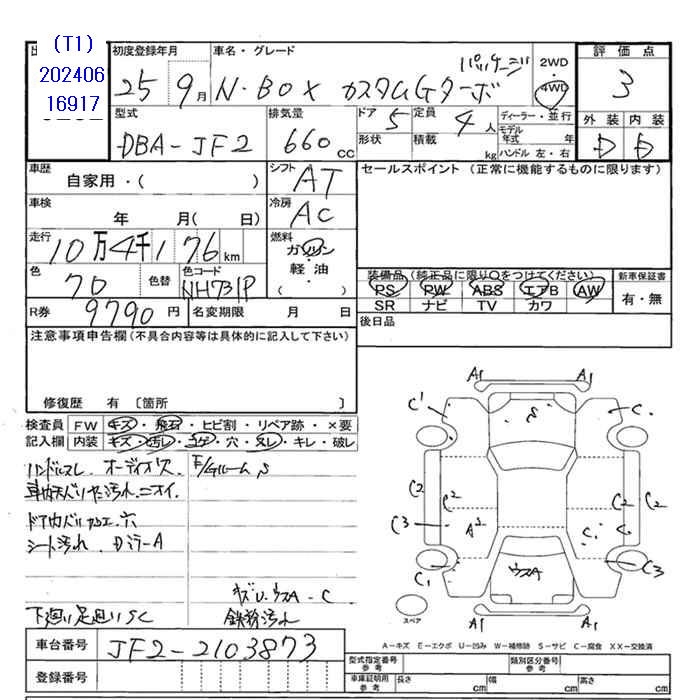 (T1)
202406
16917
初度登録年月 車名・グレード
25 9月 N・BOX カスタムGターボ パッケージ
2WD・4WD
評価点
3
外装 内装
D D
型式 排気量 ドア 定員 ディーラー・並行
DBA-JF2 660cc 5 4人
形状 積載 kg
モデル年式 年
ハンドル 左・右
車歴 シフト セールスポイント (正常に機能するものに限ります)
自家用・( ) AT
車検 冷房
年 月( 日) AC
走行 燃料
10万4千176km ガソリン・軽油・( )
色 色替 色コード
70 NH731P
装備品(純正品に限り○をつけてください) 新車保証書
PS PW ABS エアB AW 有・無
SR ナビ TV カワ
R券 9790円 名変期限 月 日
後日品
注意事項申告欄(不具合内容等は具体的に記入して下さい)
修復歴 有 〔箇所 〕
検査員 FW キズ・飛石・ヒビ割・リペア跡・×要
記入欄 内装 キズ・汚レ・コゲ・穴・スレ・キレ・破レ
ハンドルスレ オーディオ欠 F/GルームS
車内天バリヤケ汚レ.ニオイ.
ドア内バリ 穴
シート汚れ DミラーA
キズU.ウスA-C
下廻り足廻りSC 鉄粉汚れ
車台番号 JF2-2103873
登録番号
A1 A1
C1 S C1
C2 C2 C2 C2
C3 A2 C1
C1 ウスA C3
A1 A1
スペア
A－キズ E－エクボ U－凹み W－補修跡 S－サビ C－腐食 XX－交換済
型式指定番号 参考 類別区分番号 参考
車庫証明用 参考 長さ cm 幅 cm 高さ cm